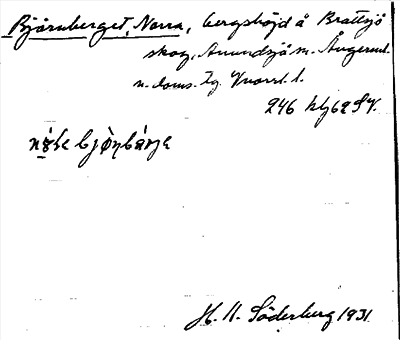 Björnberget, Norra, bergshöjd å Brattsjö
skog, Anundsjö sn. Ångerml.
n. doms. lg. Vnorrl. l.
246
bjö̀ṇbárje
H. N. Söderberg 1931